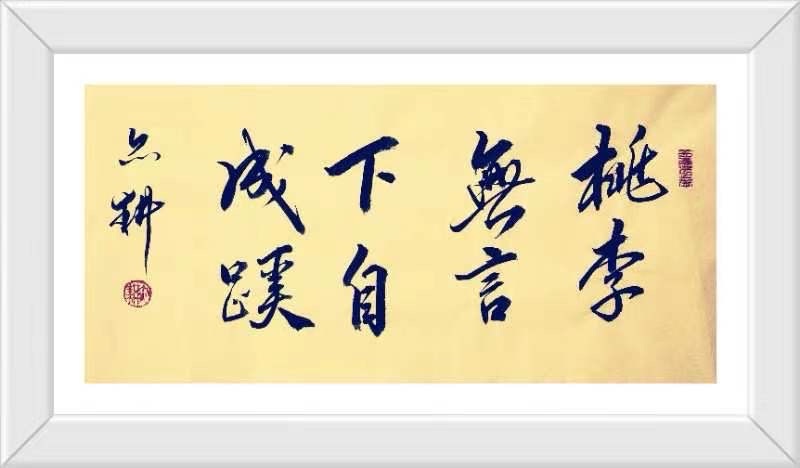 桃李
無言
下自
成蹊
耕